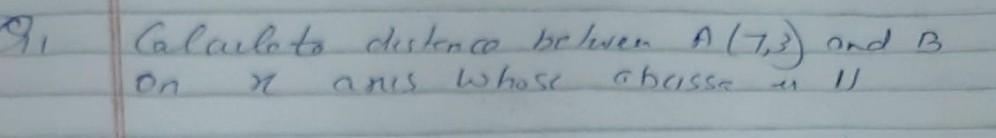 Q1 Calculate distence between A (7,3) and B
on x axis whose abcissa is 11